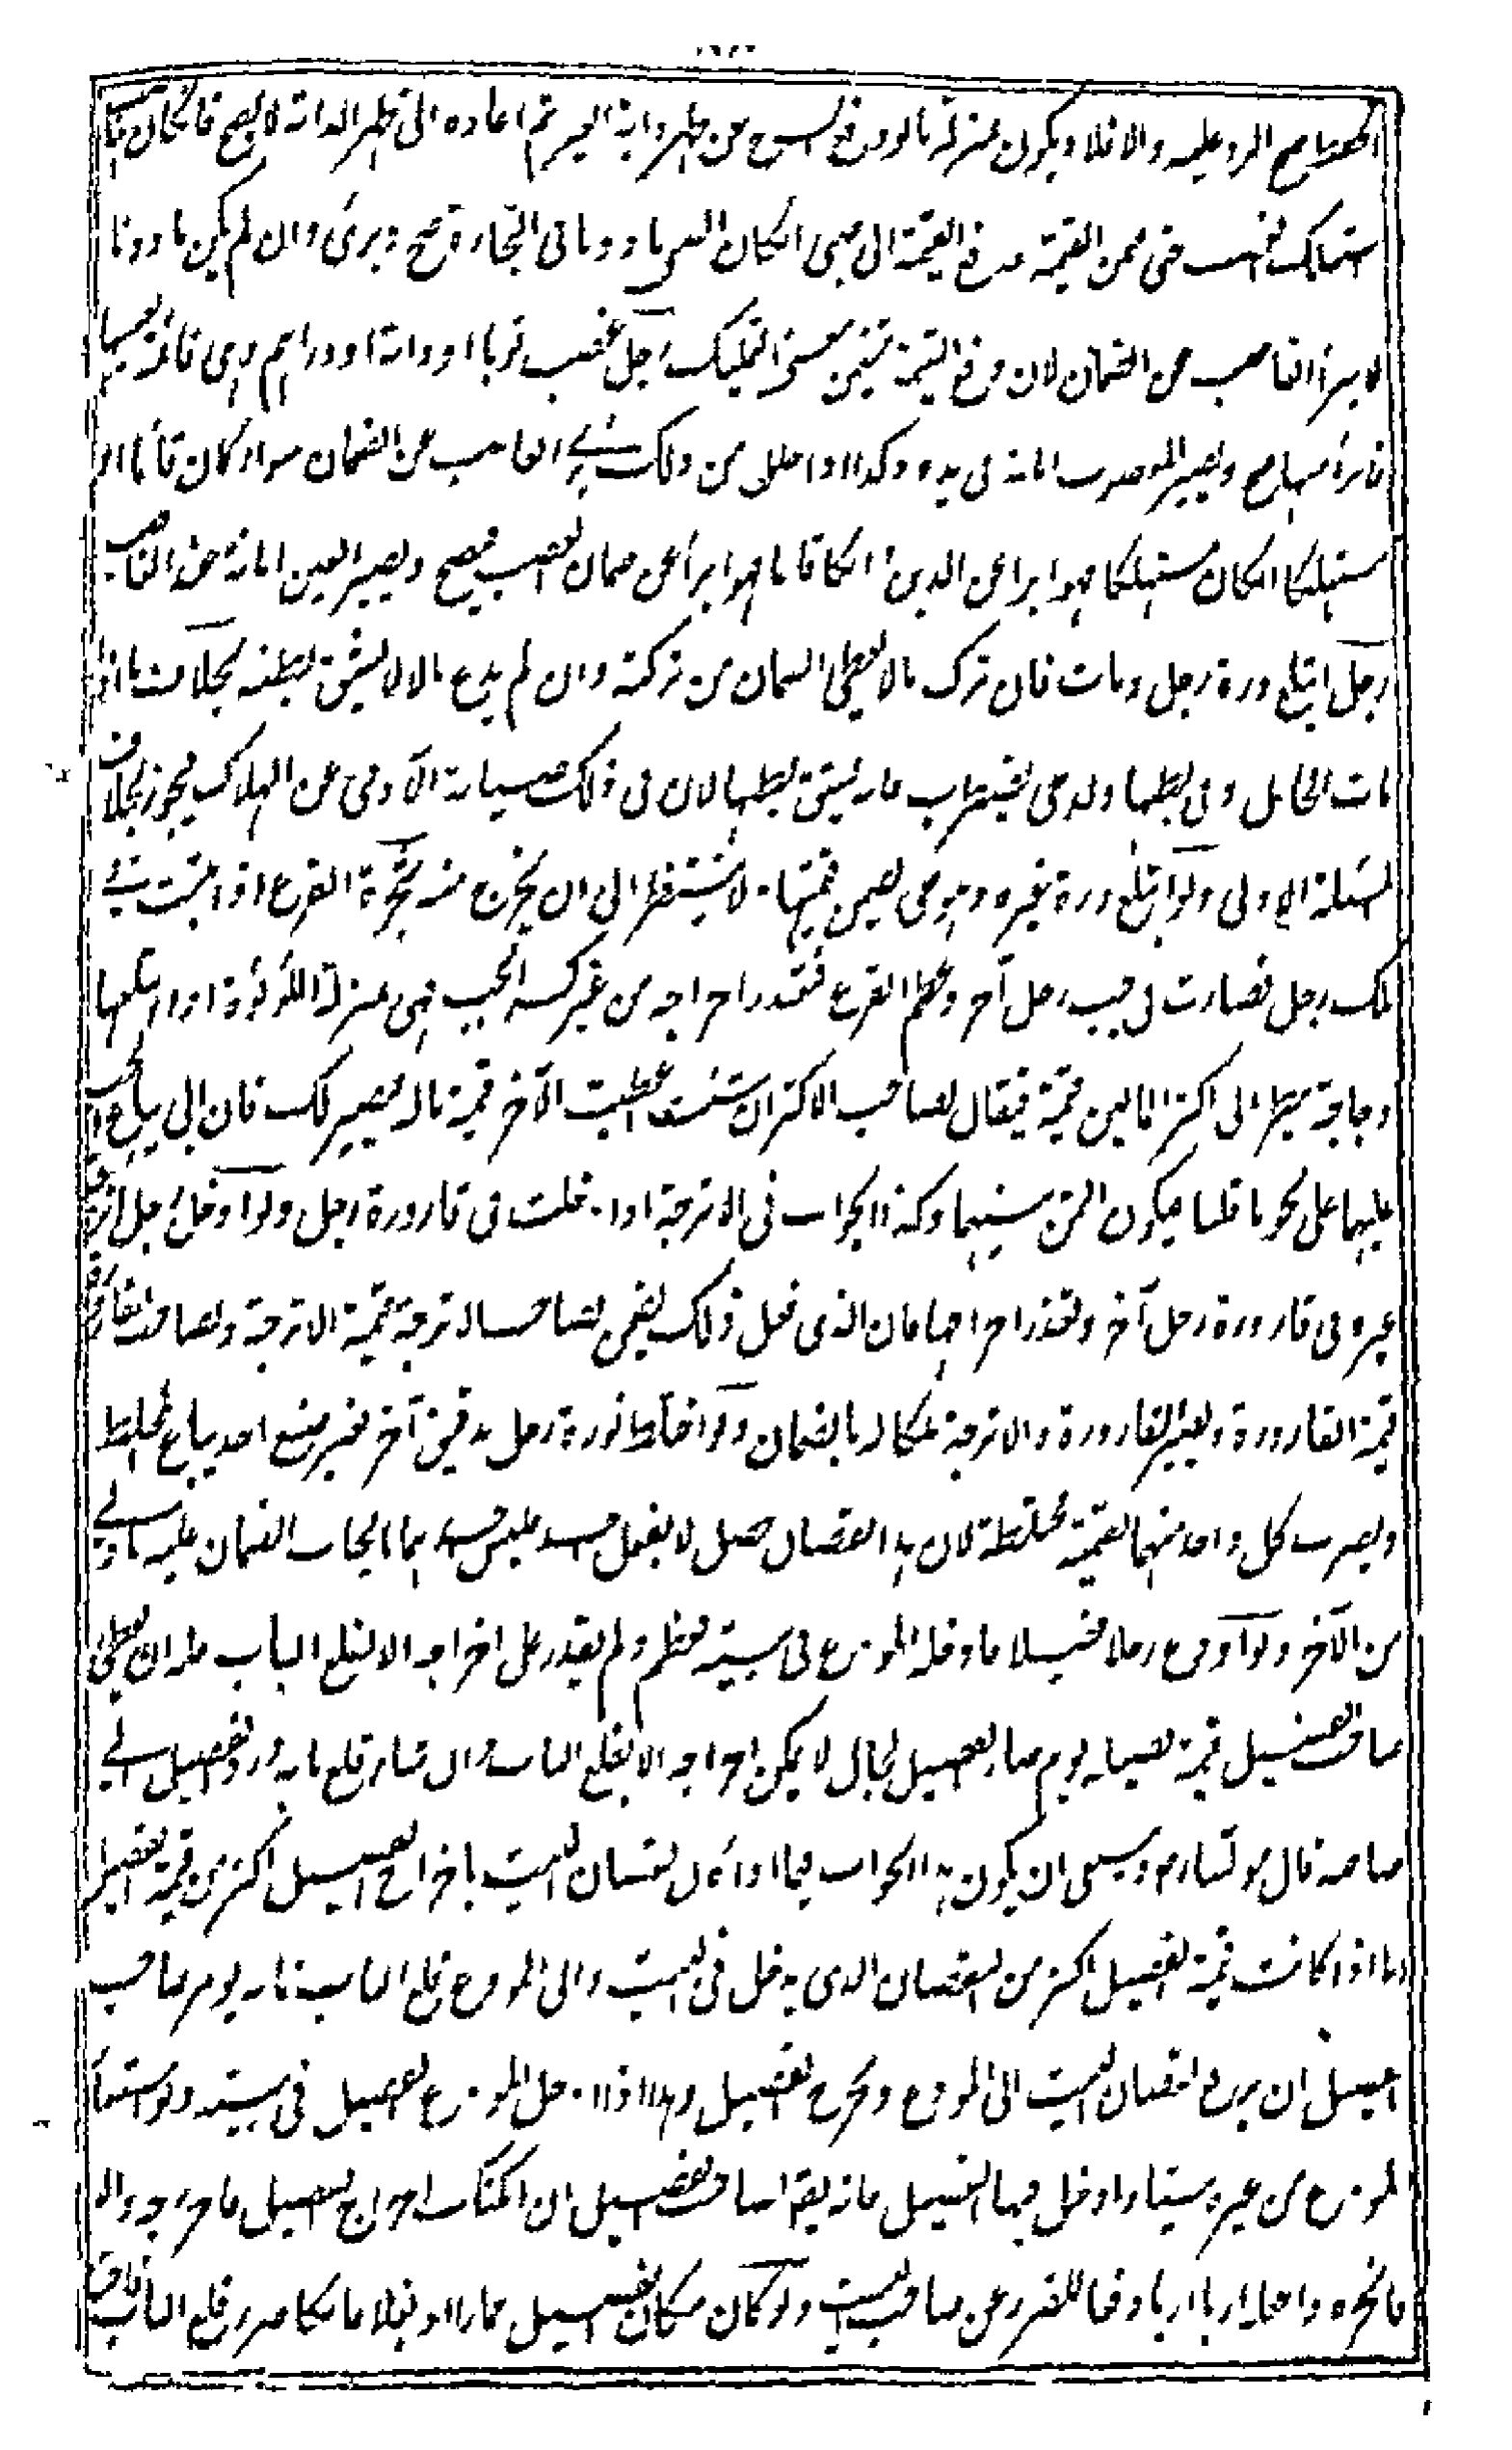 الحفظ صح الرد عليه والا فلا ويكون بمنزلة ما لو رفع السرج عن ظهر دابة الغير ثم اعاده الى ظهر الدابة لا يصح فان كان
استهلك الغصب حتى ضمن القيمة فدفع القيمة الى صبي ان كان الصبي ماذونا في التجارة صح وبرئ وان لم يكن ماذونا
لا يبرأ الغاصب عن الضمان لان دفع القيمة يتضمن معنى التمليك رجل غصب ثوبا او دابة او دراهم وهي قائمة بعينها
فابرأه منها صح ويصير المغصوب امانة في يده وكذا اذا حلله من ذلك برئ الغاصب عن الضمان سواء كان قائما او
مستهلكا ان كان مستهلكا فهو ابراء عن الدين وان كان قائما فهو ابراء عن ضمان الغصب فيصح ويصير العين امانة عند الغاصب
رجل ابتلع درة رجل ومات فان ترك مالا يعطى الضمان من تركته وان لم يدع مالا لا يشق بطنه بخلاف ما اذا
ماتت الحامل وفي بطنها ولد حي يضطرب فانه يشق بطنها لان في ذلك صيانة الآدمي عن الهلاك فيجوز بخلاف
المسئلة الاولى ولو ابتلع درة غيره وهو حي يضمن قيمتها ولا ينتظر الى ان يخرج منه شجرة القرع اذا نبتت في
ملك رجل فصارت في حب رجل آخر وعظم القرع فتعذر اخراجه من غير كسر الحب فهي بمنزلة اللؤلؤة اذا ابتلعتها
دجاجة ينظر الى اكثر المالين قيمة فيقال لصاحب الاكثر ان شئت اعطيت الآخر قيمة ماله فيصير لك فان ابى يباع الحب
عليهما على نحو ما قلنا فيكون الثمن بينهما وكذا الجواب في الاترجة اذا دخلت في قارورة رجل ولو ادخل رجل اترجة
غيره في قارورة رجل آخر وتعذر اخراجها فان الذي فعل ذلك يضمن لصاحب الاترجة قيمة الاترجة ولصاحب القارورة
قيمة القارورة ويصير القارورة والاترجة ملكا له بالضمان ولو اختلط نورة رجل بدقيق آخر بغير صنع احد يباع المختلط
ويضرب كل واحد منهما بقيمته مختلطة لان هذا النقصان حصل لا بفعل احد فليس احدهما بايجاب الضمان عليه باولى
من الآخر ولو اودع رجلا فصيلا فادخله المودع في بيته فعظم ولم يقدر على اخراجه الا بقلع الباب فله ان يعطي
صاحب الفصيل قيمة فصيله يوم صار الفصيل بحال لا يمكن اخراجه الا بقلع الباب وان شاء قلع بابه ورد الفصيل الى
صاحبه قال مولانا رح وينبغي ان يكون هذا الجواب فيما اذا كان نقصان البيت باخراج الفصيل اكثر من قيمة الفصيل
اما اذا كانت قيمة الفصيل اكثر من النقصان الذي يدخل في البيت وابى المودع قلع الباب فانه يؤمر صاحب
الفصيل ان يدفع نقصان البيت الى المودع ويخرج الفصيل وهذا اذا ادخل المودع الفصيل في بيته ولو استعار
المودع من غيره بيتا وادخل فيها الفصيل فانه يقال لصاحب الفصيل ان امكنك اخراج الفصيل فاخرجه والا
فانحره واجعله اربا اربا دفعا للضرر عن صاحب البيت ولو كان مكان الفصيل حمارا او بغلا فان كان ضرر قلع الباب